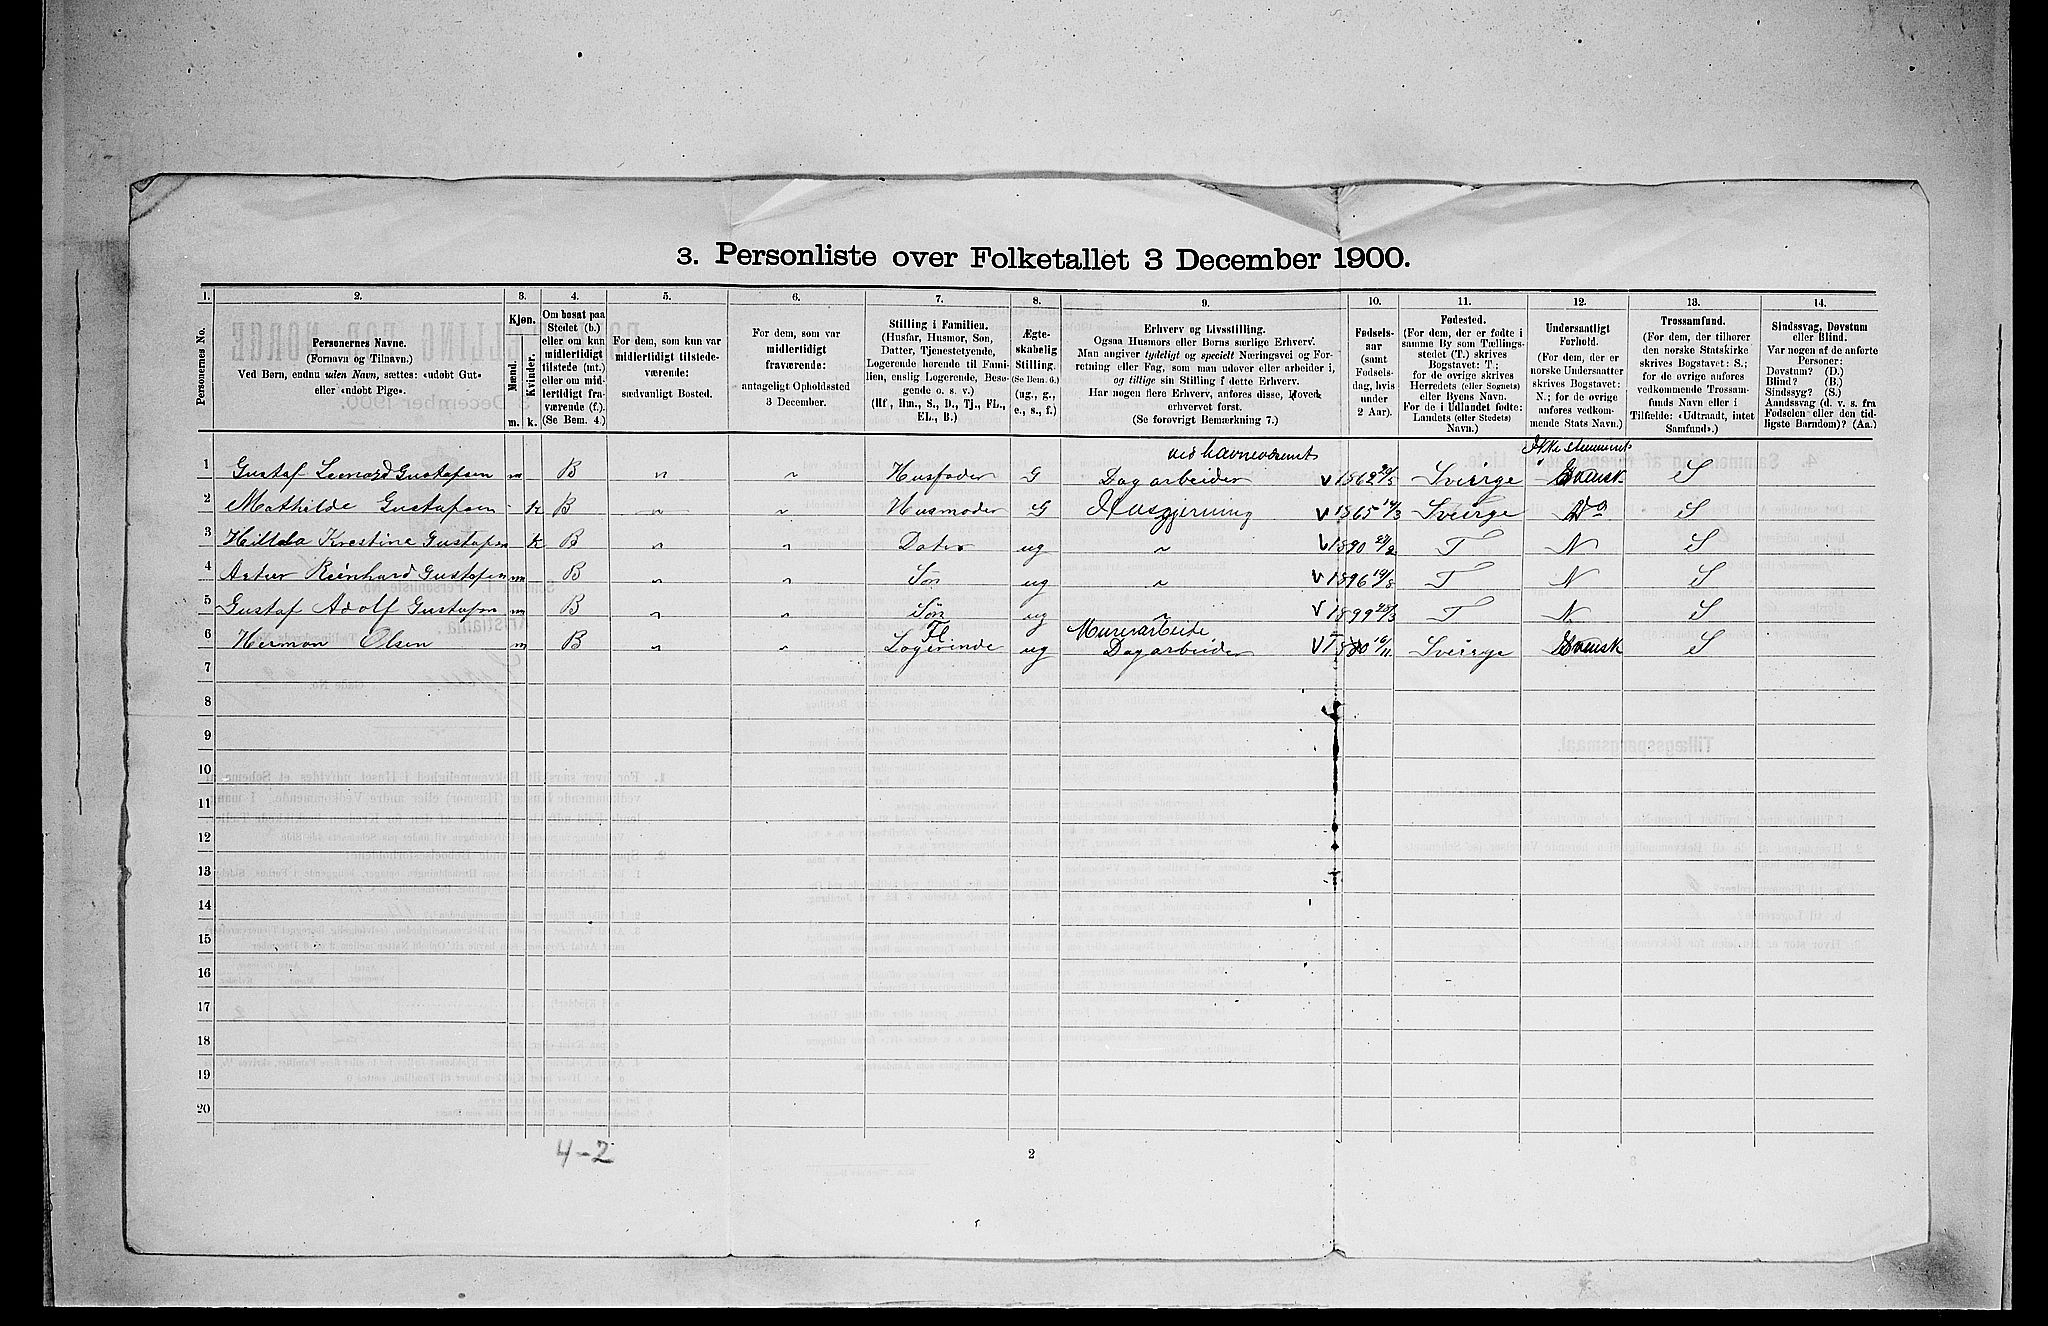 3. Personliste over Folketallet 3 December 1900.
1. 2. 3. 4. 5. 6. 7. 8. 9. 10. 11. 12. 13. 14.
Personernes No.
Personernes Navne.
(Fornavn og Tilnavn.)
Ved Børn, endnu uden Navn, sættes: «udøbt Gut»
eller «udøbt Pige».
Kjøn.
Mænd.
Kvinder.
m. k.
Om bosat paa
Stedet (b.)
eller om kun
midlertidigt
tilstede (mt.)
eller om mid-
lertidigt fra-
værende (f.).
(Se Bem. 4.)
For dem, som kun var
midlertidigt tilstede-
værende:
sædvanligt Bosted.
For dem, som var
midlertidigt
fraværende:
antageligt Opholdssted
3 December.
Stilling i Familien.
(Husfar, Husmor, Søn,
Datter, Tjenestetyende,
Logerende hørende til Fami-
lien, enslig Logerende, Besø-
gende o. s. v.)
(Hf, Hm., S., D., Tj., FL.,
EL., B.)
Ægte-
skabelig
Stilling.
(Se Bem. 6.)
(ug., g.,
e., s., f.)
Erhverv og Livsstilling.
Ogsaa Husmors eller Børns særlige Erhverv.
Man angiver tydeligt og specielt Næringsvei og For-
retning eller Fag, som man udøver eller arbeider i,
og tillige sin Stilling i dette Erhverv.
Har nogen flere Erhverv, anføres disse, Hoved-
erhvervet først.
(Se forøvrigt Bemærkning 7.)
Fødsels-
aar
(samt
Fødsels-
dag, hvis
under
2 Aar).
Fødested.
(For dem, der er fødte i
samme By som Tællings-
stedet (T.) skrives
Bogstavet: T.;
for de øvrige skrives
Herredets (eller Sognets)
eller Byens Navn.
For de i Udlandet fødte:
Landets (eller Stedets)
Navn.)
Undersaatligt
Forhold.
(For dem, der er
norske Undersaatter
skrives Bogstavet:
N.; for de øvrige
anføres vedkom-
mende Stats Navn.)
Trossamfund.
(For dem, der tilhører
den norske Statskirke
skrives Bogstavet: S.;
for de øvrige anføres
vedkommende Trossam-
funds Navn eller i
Tilfælde: «Udtraadt, intet
Samfund».)
Sindssvag, Døvstum
eller Blind.
Var nogen af de anførte
Personer:
Døvstum? (D.)
Blind? (B.)
Sindssyg? (S.)
Aandssvag (d. v. s. fra
Fødselen eller den tid-
ligste Barndom)? (Aa.)
ved havnevæsenet
1 Gustaf Leonard Gustafsen m B " " Husfader G Dagarbeider v 1862 Sveirge Svensk S
2 Mathilde Gustafsen k B " " Husmoder G Husgjerning v 1865 14/3 Sveirge Do S
3 Hilda Krestine Gustafsen k B " " Dater ug " v 1890 T N S
4 Artur Reinhard Gustafsen m B " " Søn ug " v 1896 19/8 T N S
5 Gustaf Adolf Gustafsn m B " " Søn ug " v 1899 T N S
Fl Murerarbeide
6 Herman Olsen m B " " Logerinde ug Dagarbeider v 1880 16/11 Sveirge Svensk S
7
8
9
10
11
12
13
14
15
16
17
18
19
20
4-2
2